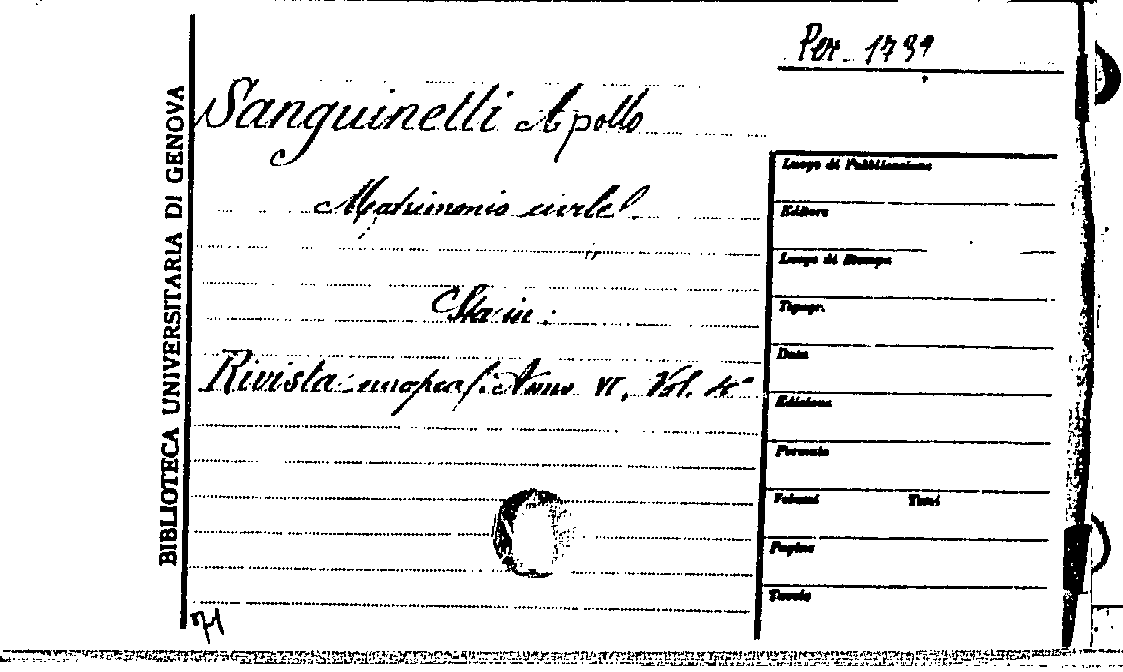 Per. 1739
BIBLIOTECA UNIVERSITARIA DI GENOVA
Sanguinetti Apollo
Matrimonio civile
Sta in:
Rivista europea. Anno VI, Vol. 4°
Luogo di Pubblicazione
Editore
Luogo di Stampa
Tipogr.
Data
Edizione
Formato
Volumi Tomi
Pagine
Tavole